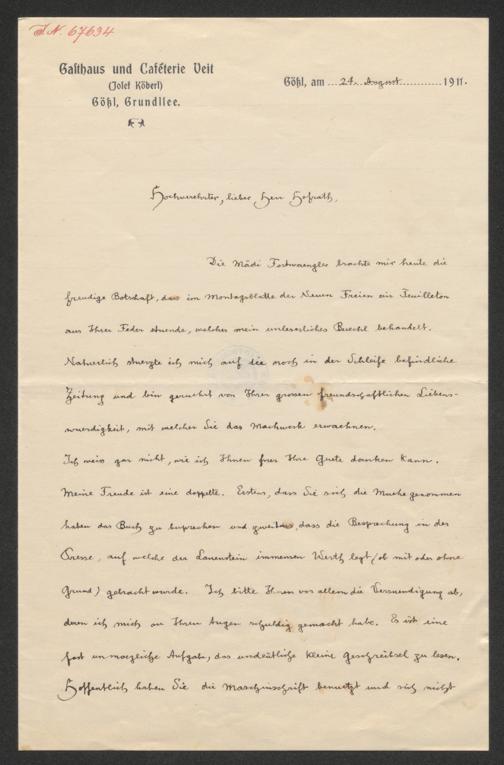 I.N. 67634
Gasthaus und Caféterie Veit
(Josef Köberl)
Gößl, Grundlsee.
Gößl, am 24. August 1911.
Hochverehrter, lieber Herr Hofrath,
Die Mädi Furtwaengler brachte mir heute die
freudige Botschaft, dass im Montagsblatte der Neuen Freien ein Feuilleton
aus Ihrer Feder stuende, welches mein unleserliches Buechl behandelt.
Natuerlich stuerzte ich mich auf die noch in der Schleife befindliche
Zeitung und bin geruehrt von Ihrer grossen freundschaftlichen Liebens-
wuerdigkeit, mit welcher Sie das Machwerk erwaehnen.
Ich weiss gar nicht, wie ich Ihnen fuer Ihre Guete danken kann.
Meine Freude ist eine doppelte. Erstens, dass Sie sich die Muehe genommen
haben das Buch zu besprechen und zweitens, dass die Besprechung in der
Presse, auf welche der immensen Werth legt (ob mit oder ohne
Grund) gebracht wurde. Ich bitte Ihnen vor allem die Versuendigung ab,
deren ich mich an Ihren Augen schuldig gemacht habe. Es ist eine
fast unmoegliche Aufgabe, das undeutliche kleine Geschreibsel zu lesen.
Hoffentlich haben Sie die Maschinschrift benuetzt und sich nicht